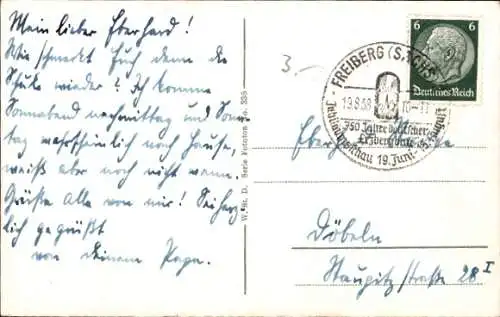 Mein lieber Eberhard!
Wie schmeckt Euch denn die
Schule wieder? Ich komme
Sonnabend nachmittag und Sonn
tag wahrscheinlich nach Hause,
weiß aber noch nicht wann.
Grüße Alle von mir! Sei herz
lich gegrüßt
von Deinem Papa.
W. St. D. Serie Fototon No. 336
3.-
6 6
Deutsches Reich
FREIBERG (S
19.8.38 10-11
750 Jahre Deutscher
Erzbergbau
Jubiläumsschau 19. Juni
Eberhard
Döbeln
Staupitzstraße 28 I